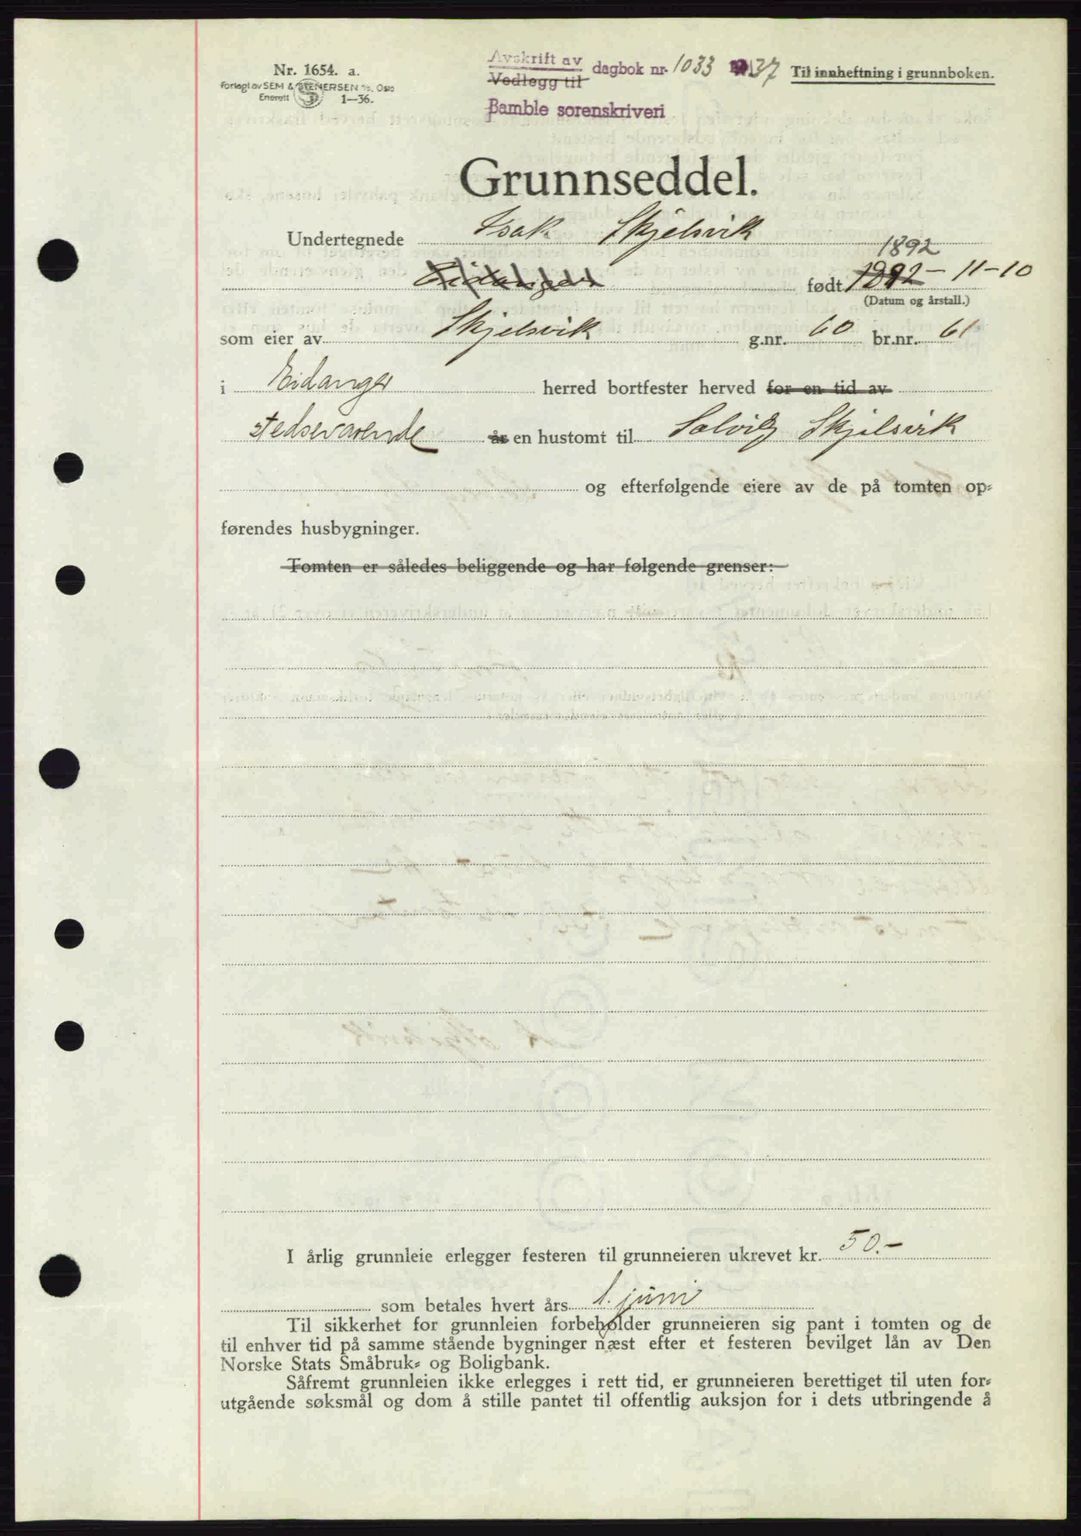 Nr. 1654. a.
Forlagt av SEM & STENERSEN A/S, Oslo
Enerett 1—36.
Avskrift av
Vedlegg til dagbok nr. 1033 1937
Bamble sorenskriveri
Til innheftning i grunnboken.
Grunnseddel.
Undertegnede Isak Skjelsvik
1892
Eidanger født 1892-11-10
(Datum og årstall.)
som eier av Skjelsvik g.nr. 60 br.nr. 61
i Eidanger herred bortfester herved for en tid av
stedsevarende år en hustomt til Solveig Skjelsvik
og efterfølgende eiere av de på tomten op-
førendes husbygninger.
Tomten er således beliggende og har følgende grenser:
I årlig grunnleie erlegger festeren til grunneieren ukrevet kr. 50.-
som betales hvert års 1. juni
Til sikkerhet for grunnleien forbeholder grunneieren sig pant i tomten og de
til enhver tid på samme stående bygninger næst efter et festeren bevilget lån av Den
Norske Stats Småbruk- og Boligbank.
Såfremt grunnleien ikke erlegges i rett tid, er grunneieren berettiget til uten for-
utgående søksmål og dom å stille pantet til offentlig auksjon for i dets utbringende å